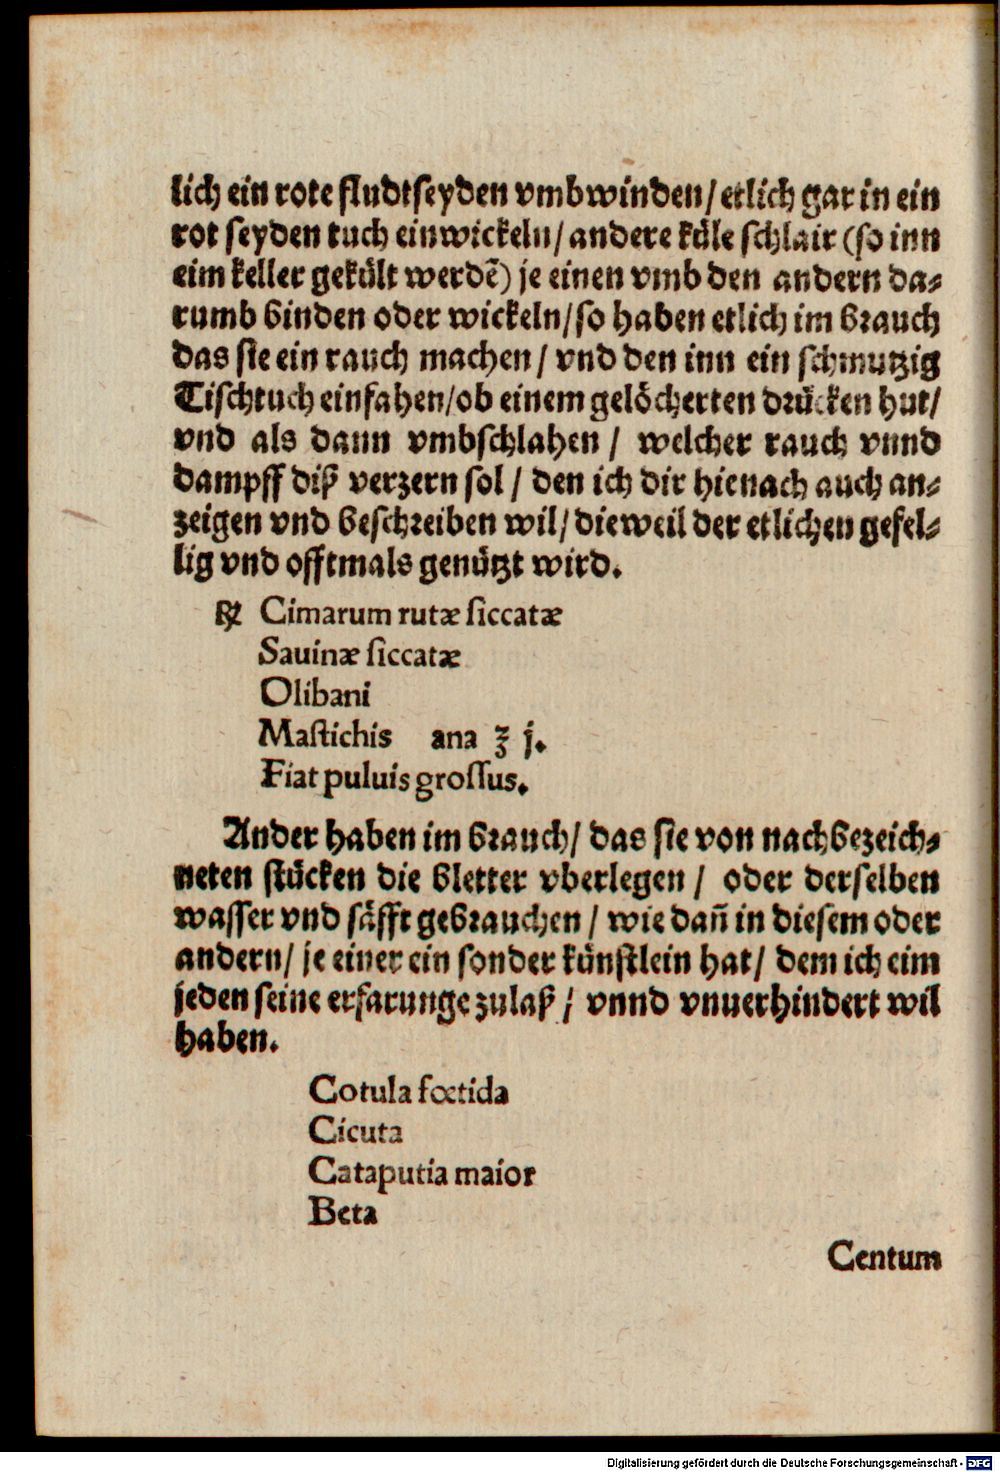 lich ein rote fludtseyden vmbwinden/ etlich gar in ein
rot seyden tuch einwickeln/ andere küle schlair (so inn
eim keller gekült werdē) je einen vmb den andern da⸗
rumb binden oder wickeln/ so haben etlich im brauch
das sie ein rauch machen/ vnd den inn ein schmutzig
Tischtuch einfahen/ ob einem gelöcherten drücken hut/
vnd als dann vmbschlahen/ welcher rauch vnnd
dampff diß verzern sol/ den ich dir hienach auch an⸗
zeigen vnd beschreiben wil/ dieweil der etlichen gefel⸗
lig vnd offtmals genützt wird.
℞ Cimarum rutæ siccatæ
Sauinæ siccatæ
Olibani
Mastichis ana ʒ j.
Fiat puluis grossus.
Ander haben im brauch/ das sie von nachbezeich⸗
neten stücken die bletter vberlegen/ oder derselben
wasser vnd säfft gebrauchen/ wie dañ in diesem oder
andern/ je einer ein sonder künstlein hat/ dem ich eim
jeden seine erfarunge zulaß/ vnnd vnuerhindert wil
haben.
Cotula fœtida
Cicuta
Cataputia maior
Beta
Centum
Digitalisierung gefördert durch die Deutsche Forschungsgemeinschaft - DFG